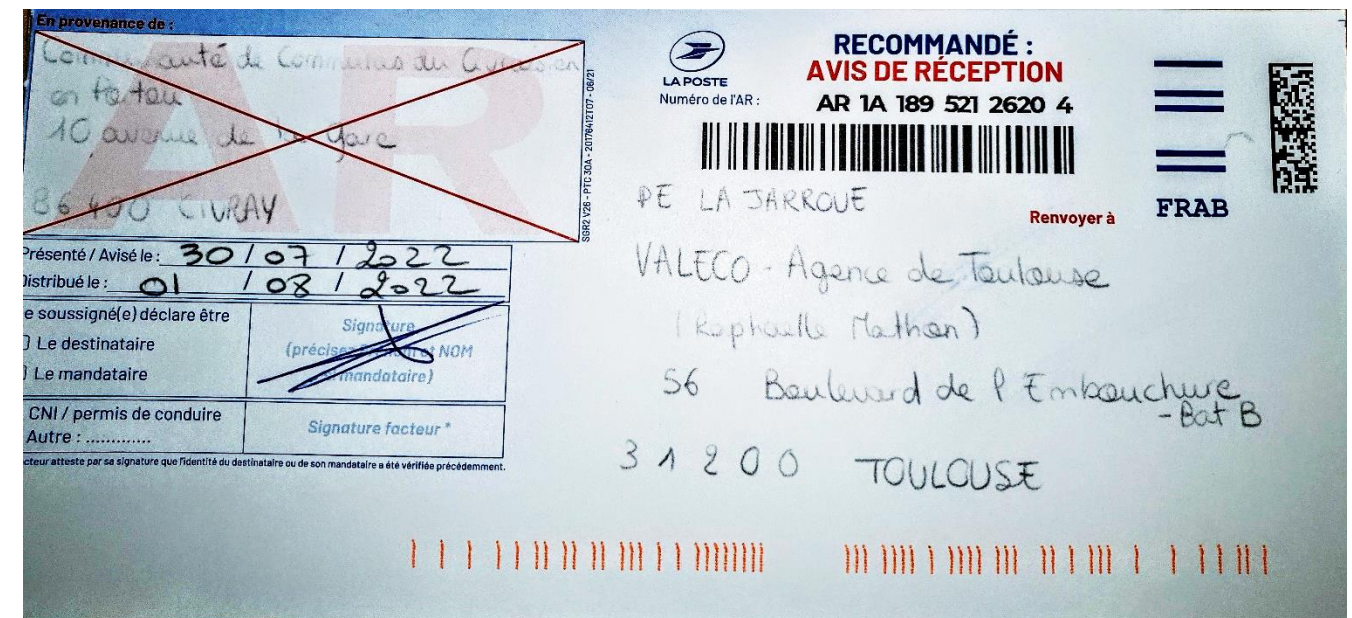 En provenance de :
Communauté de Communes du
en Poitou
10 avenue de la Gare
86 400 CIVRAY
AR
SGR2 V26 - PTC 30A - 20176412T07 - 06/21
Présenté / Avisé le : 30 / 07 / 2022
Distribué le : 01 / 08 / 2022
e soussigné(e) déclare être
Le destinataire
Le mandataire
CNI / permis de conduire
Autre : .............
Signature
(précisez et NOM
mandataire)
Signature facteur *
cteur atteste par sa signature que l'identité du destinataire ou de son mandataire a été vérifiée précédemment.
LA POSTE
RECOMMANDÉ :
AVIS DE RÉCEPTION
Numéro de l'AR : AR 1A 189 521 2620 4
Renvoyer à
FRAB
PE LA JARROUE
VALECO - Agence de Toulouse
(Raphaelle Mathon)
56 Boulevard de l'Embouchure
- Bat B
31200 TOULOUSE